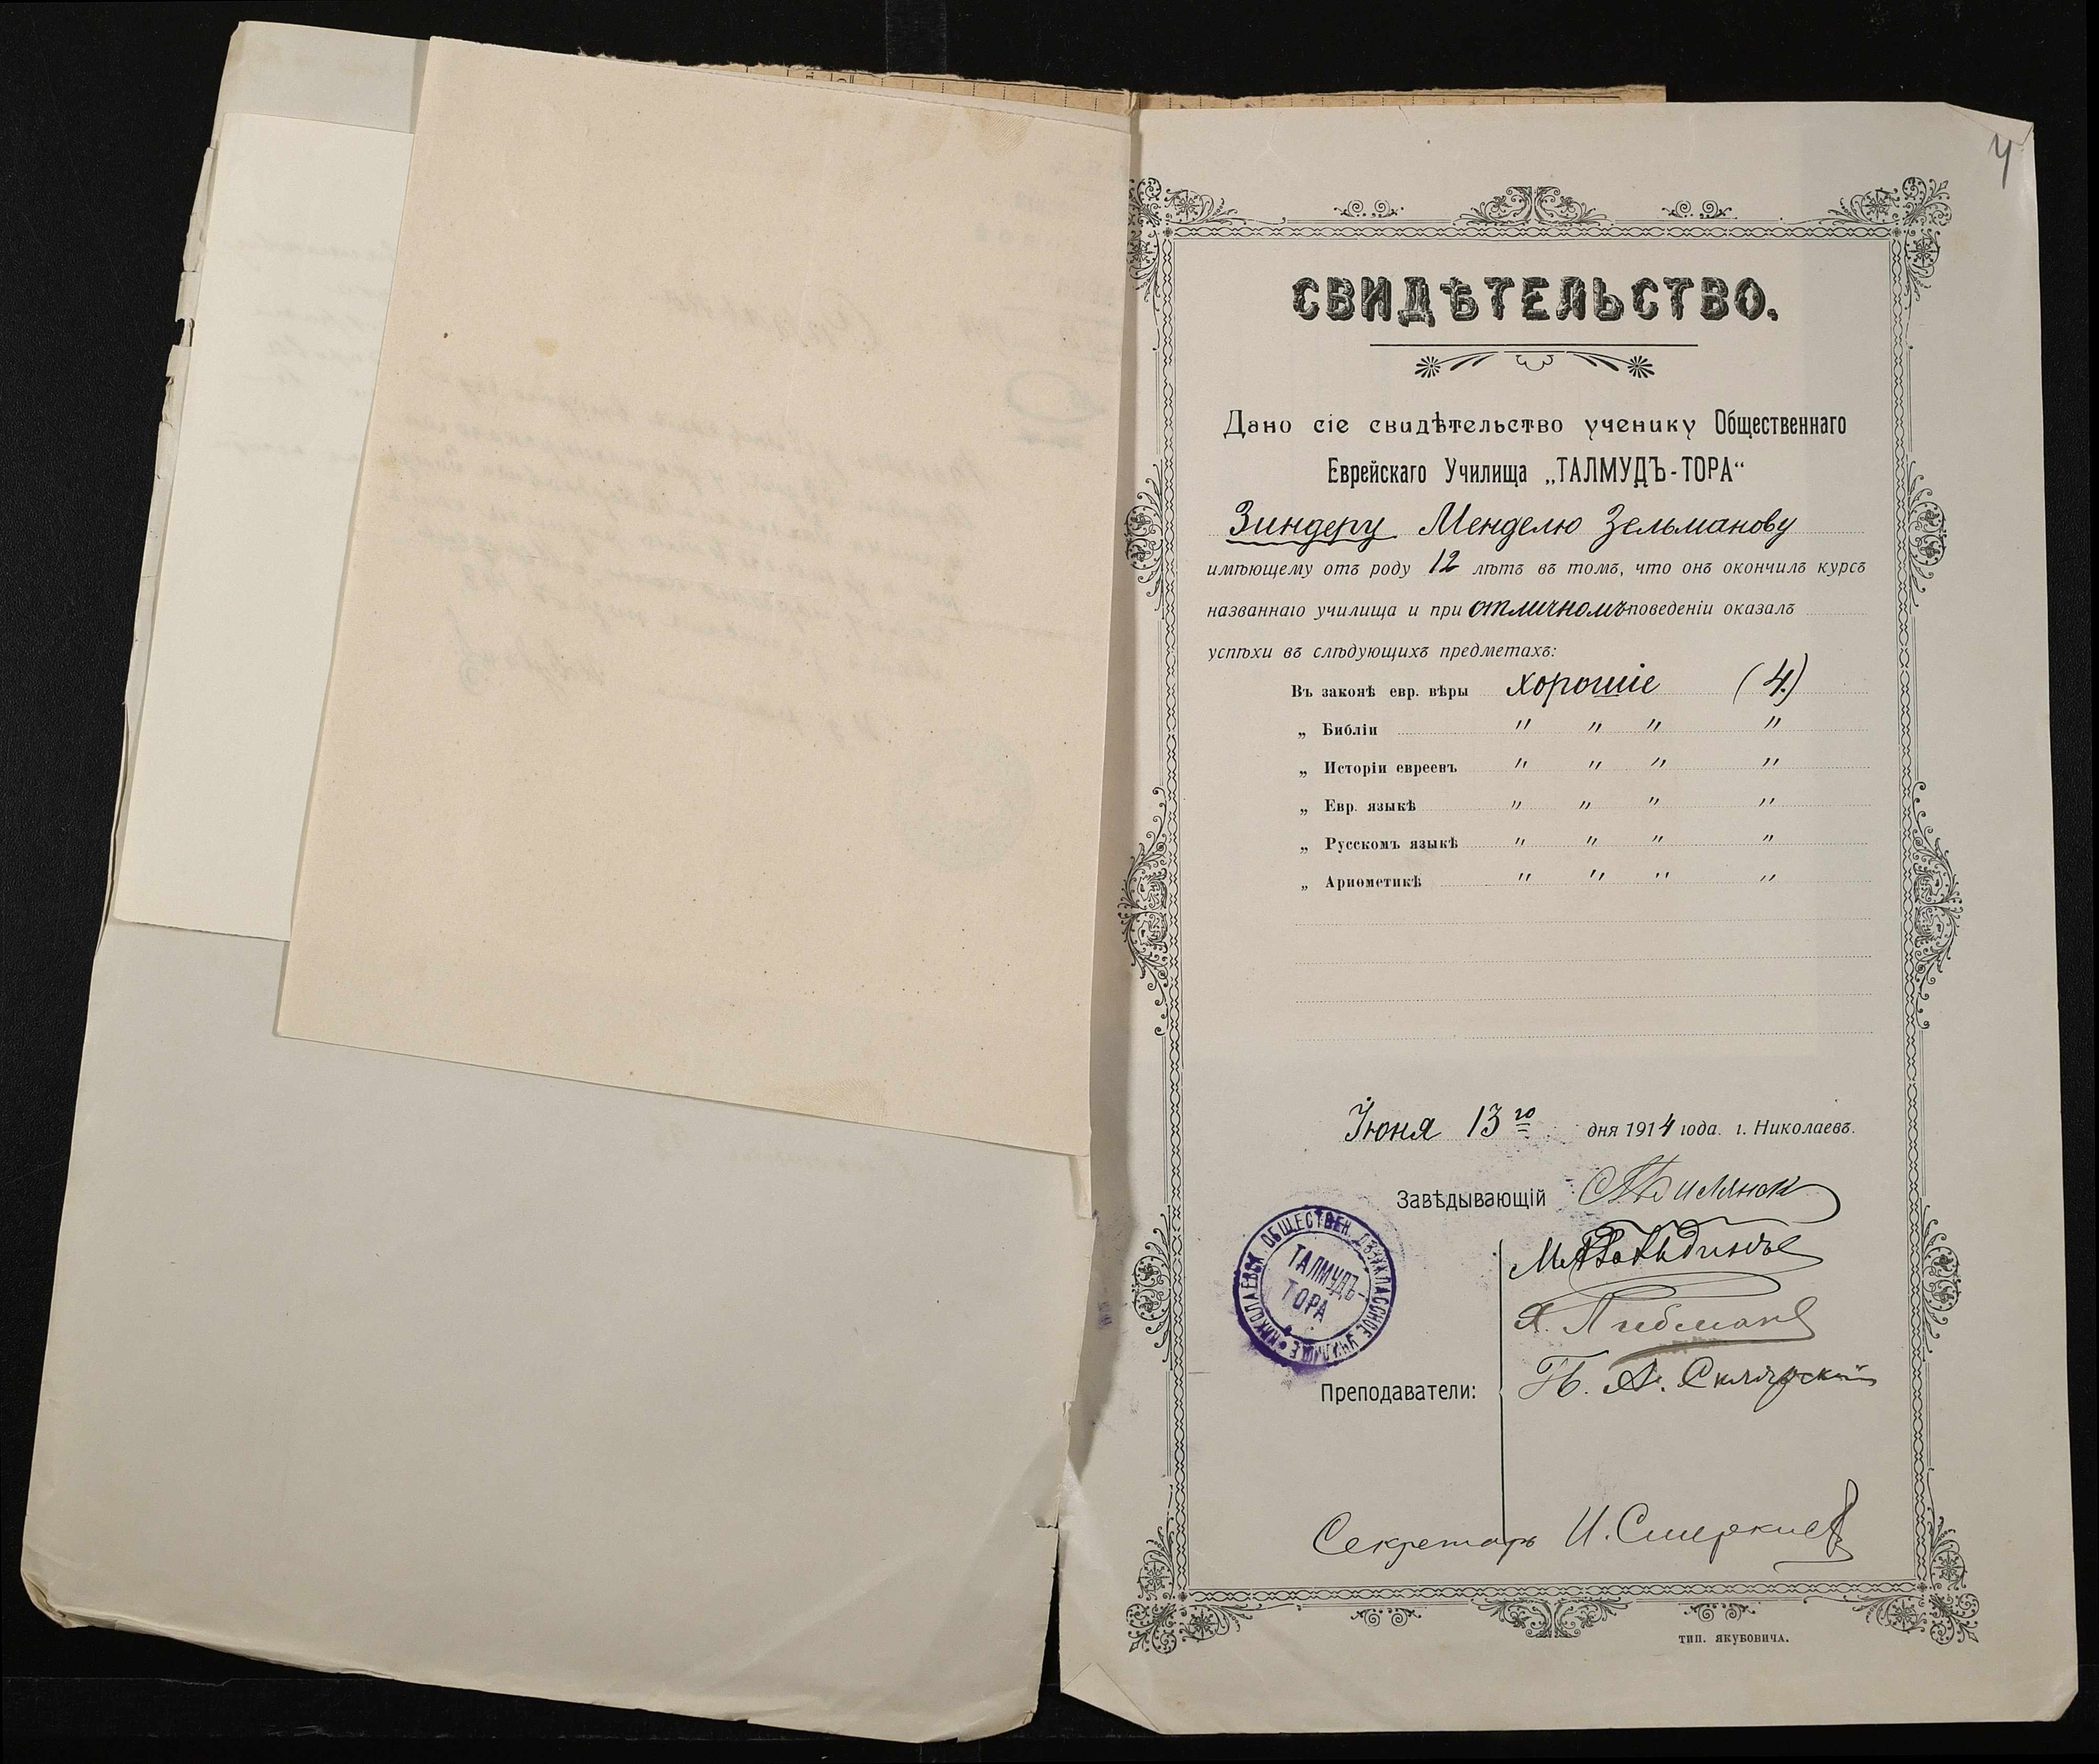 4
СВИДѢТЕЛЬСТВО.
Дано сіе свидѣтельство ученику Общественнаго
Еврейскаго Училища „ТАЛМУДЪ-ТОРА“
Зиндеру Менделю Зельманову
имѣющему отъ роду 12 лѣтъ въ томъ, что онъ окончилъ курсъ
названнаго училища и при отличномъ поведеніи оказалъ
успѣхи въ слѣдующихъ предметахъ:
Въ законѣ евр. вѣры хорошіе (4.)
„ Библіи " " " "
„ Исторіи евреевъ " " " "
„ Евр. языкѣ " " " "
„ Русскомъ языкѣ " " " "
„ Ариѳметикѣ " " " "
Іюня 13го дня 1914 года. г. Николаевъ.
Завѣдывающій
НИКОЛАЕВСК. ОБЩЕСТВЕН. ДВУХКЛАССНОЕ УЧИЛИЩЕ
ТАЛМУДЪ-
ТОРА
Преподаватели:
Секретарь И.
ТИП. ЯКУБОВИЧА.